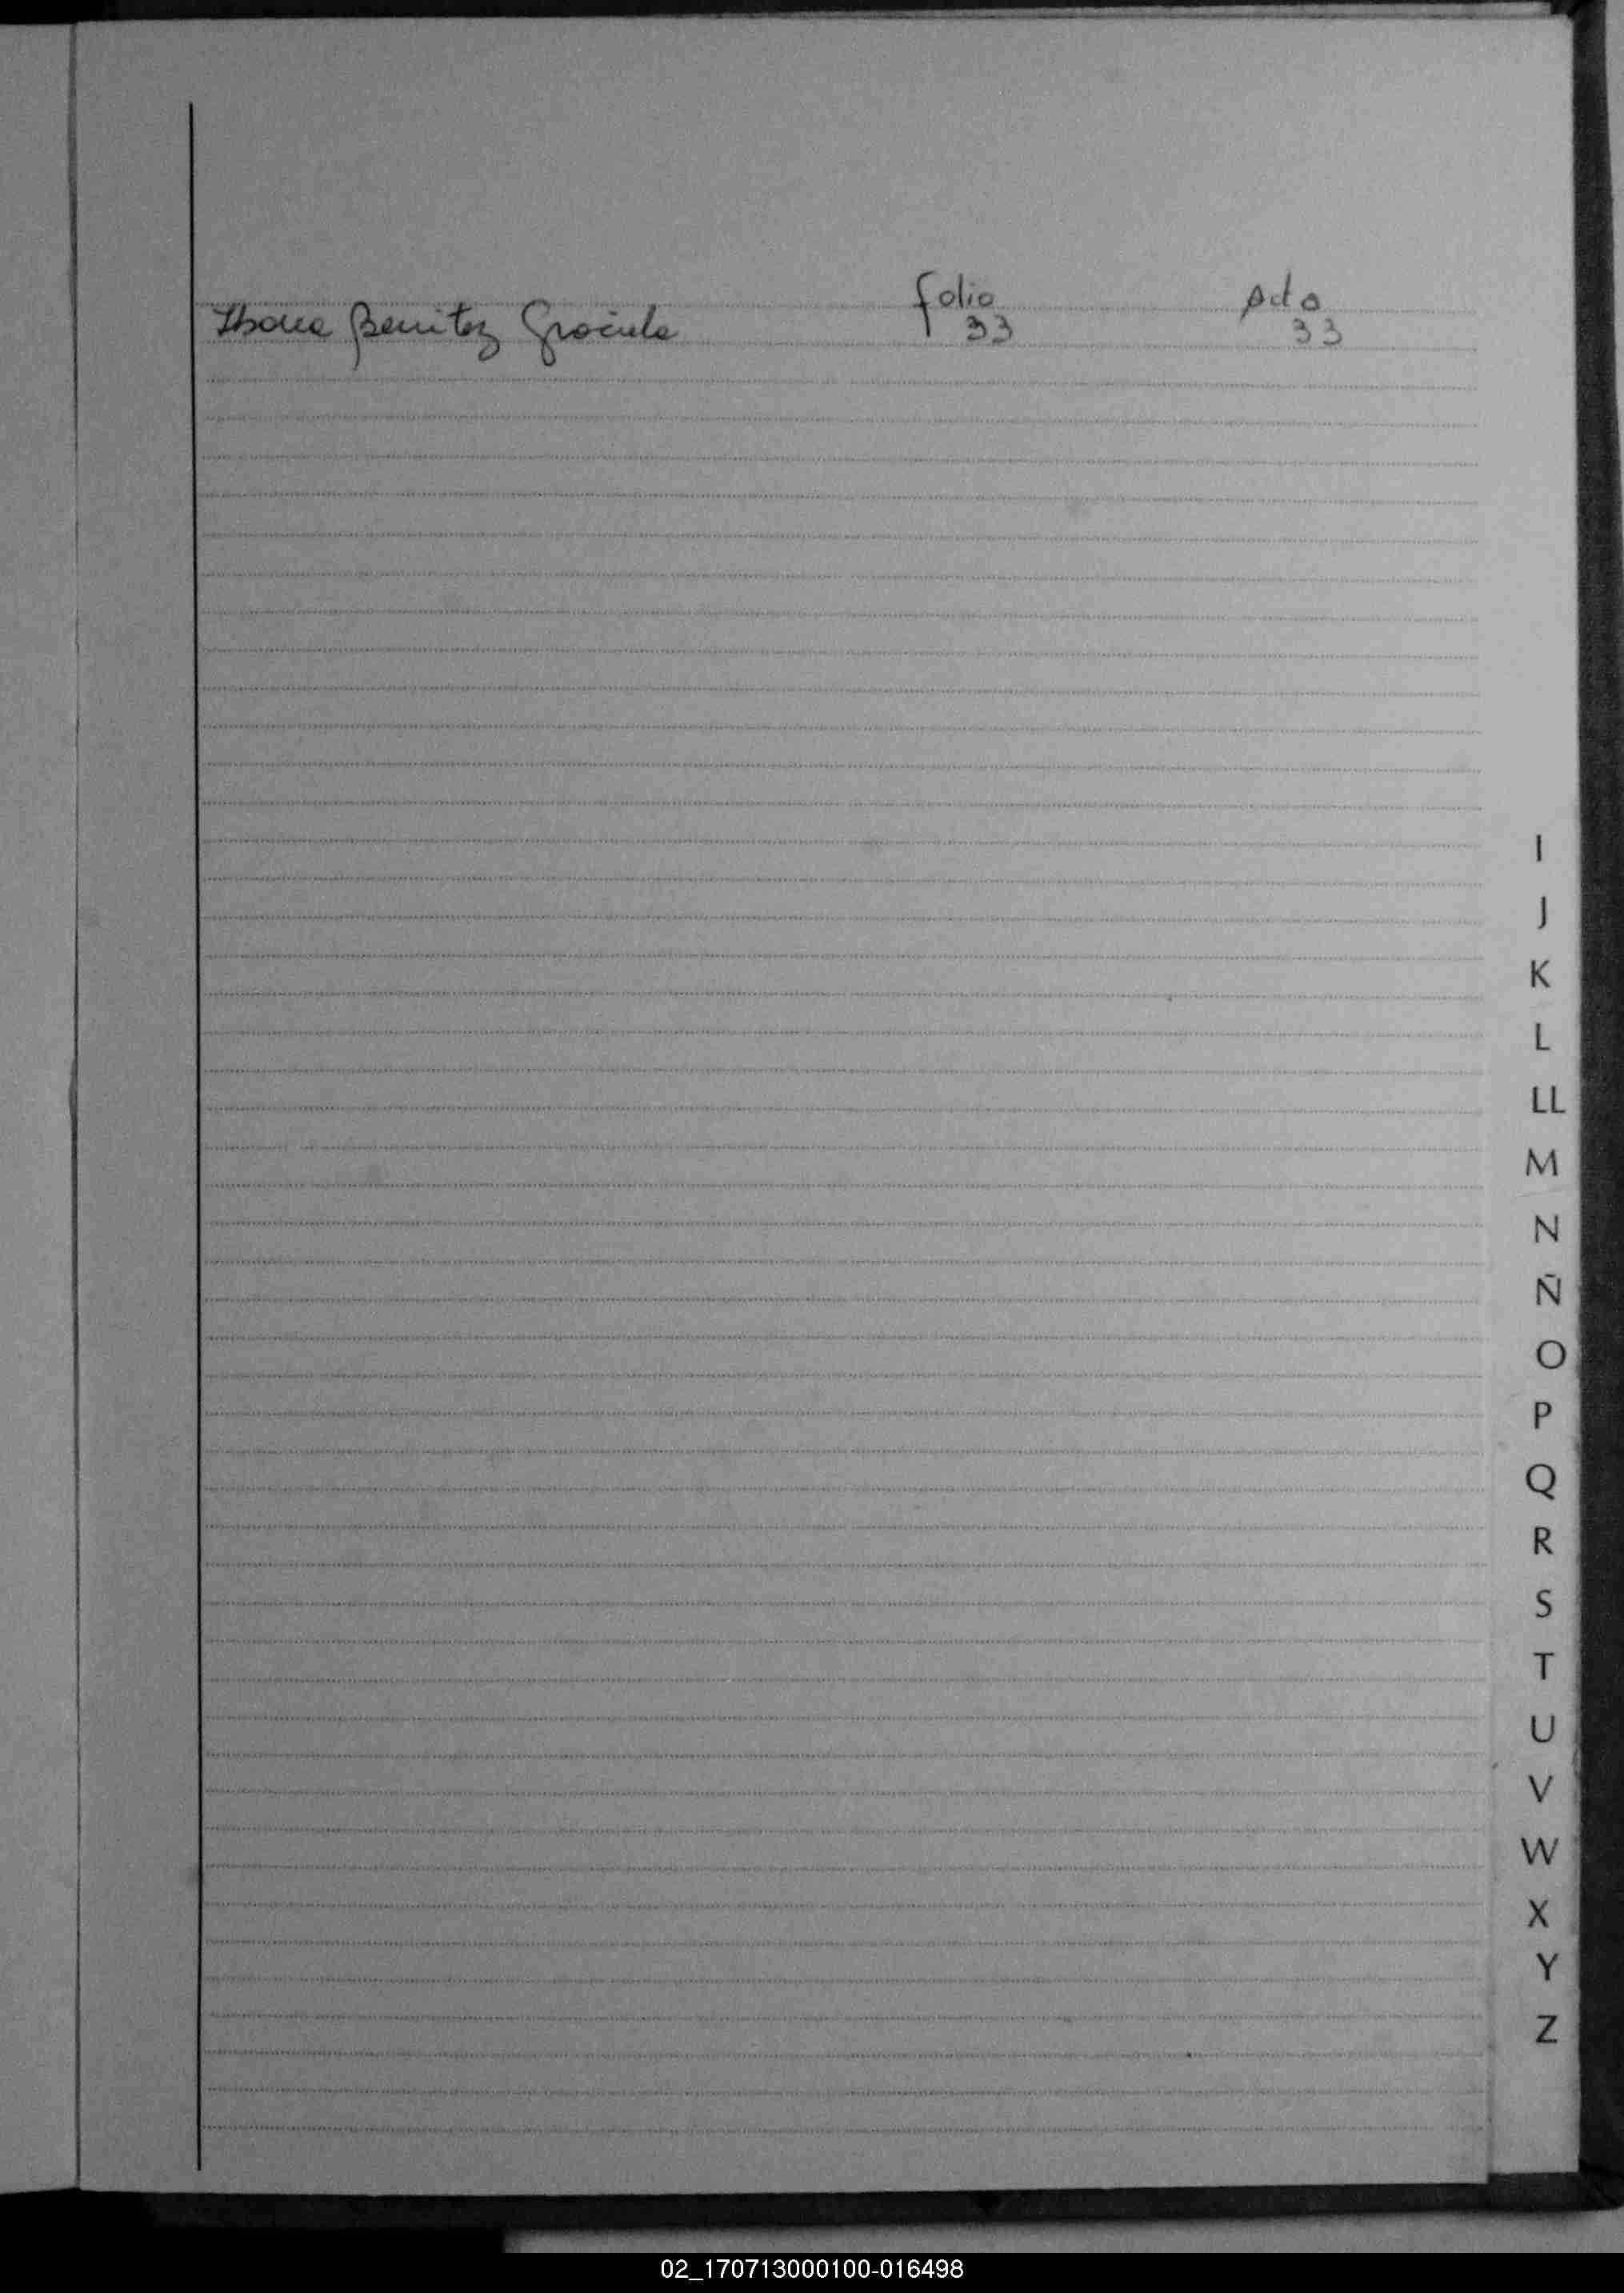 folio Acta
Ibarra Benitez Graciela 33 33
I
J
K
L
LL
M
N
Ñ
O
P
Q
R
S
T
U
V
W
X
Y
Z
02_170713000100-016498